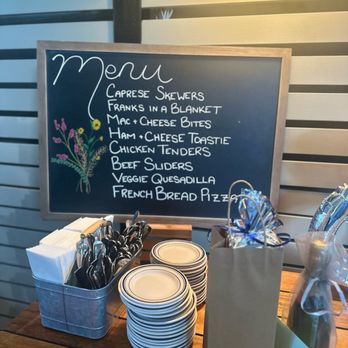 Menu
Caprese Skewers
Franks in a Blanket
Mac + Cheese Bites
Ham + Cheese Toastie
Chicken Tenders
Beef Sliders
Veggie Quesadilla
French Bread Pizza